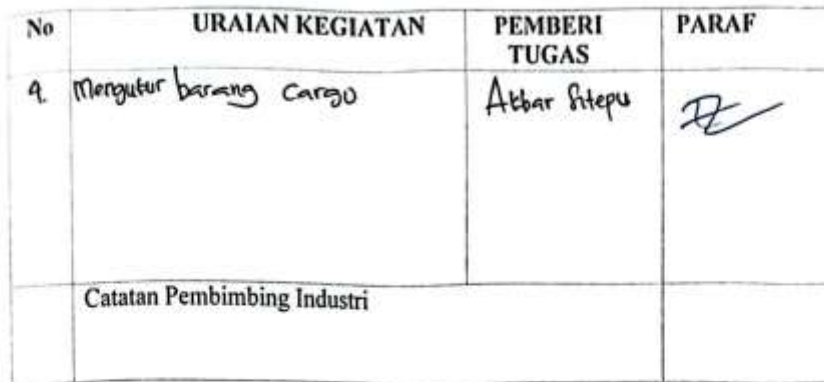 No URAIAN KEGIATAN PEMBERI TUGAS PARAF
9. Mengukur barang Cargo Akbar Sitepu
Catatan Pembimbing Industri